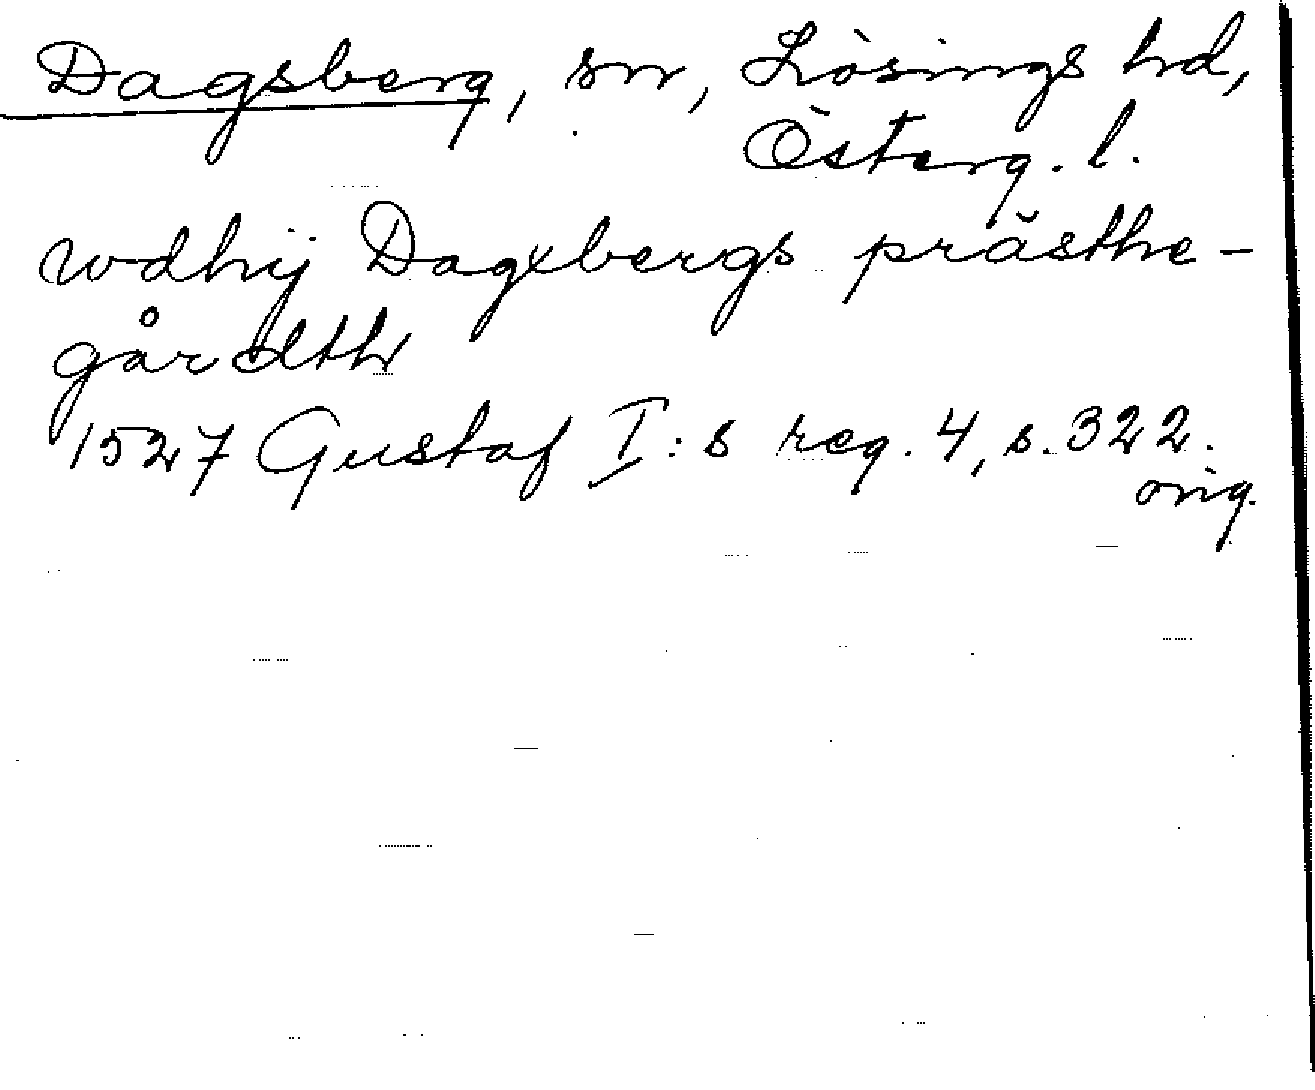 Dagsberg, sn, Lösings hd,
Österg. l.
wdhij Dagxbergs prästhe-
gårdth
1527 Gustaf I:s reg. 4, s. 322.
orig.